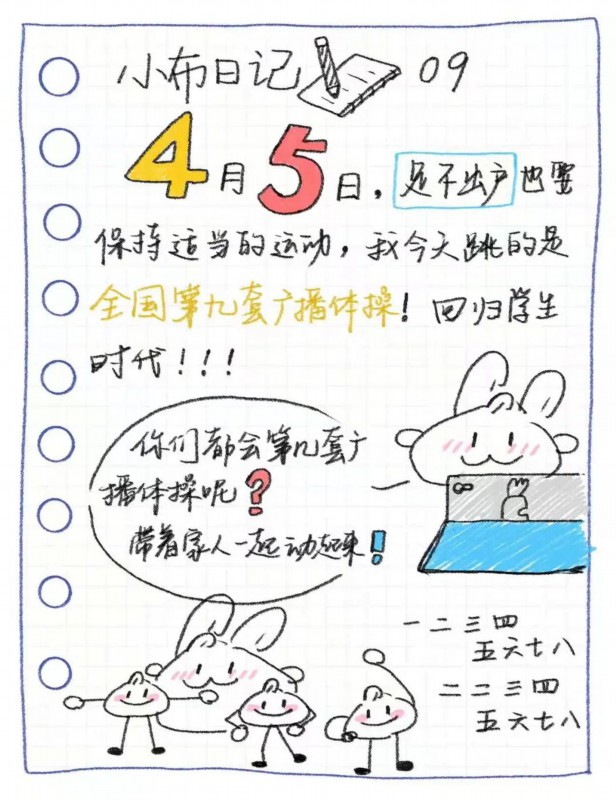 小布日记 09
4月5日，足不出户也要
保持适当的运动，我今天跳的是
全国第九套广播体操！回归学生
时代！！！
你们都会第几套广
播体操呢？
带着家人一起动起来！
一二三四
五六七八
二二三四
五六七八